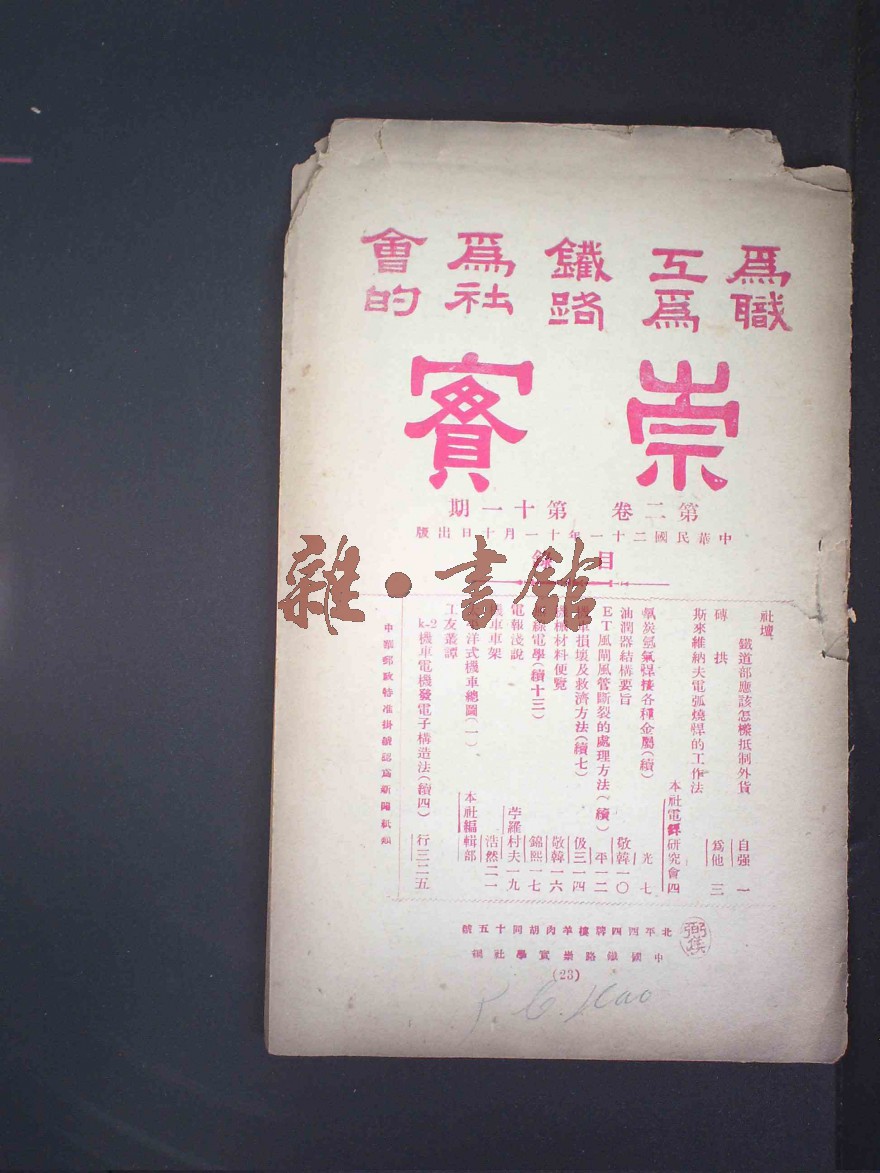 爲職
工爲
鐵路
爲社
會的
崇實
第二卷 第十一期
中華民國二十一年十一月十日出版
目錄
社壇
鐵道部應該怎樣抵制外貨 自强 一
磚拱 爲他 三
斯來維納夫電弧燒焊的工作法 本社電銲研究會 四
氧炭氫氣焊接各種金屬(續) 光 七
油潤器結構要旨 敬韓 一〇
ET風閘風管斷裂的處理方法(續) 平 一二
車損壞及救濟方法(續七) 伋三 一四
材料便覽 敬韓 一六
線電學(續十三) 錦熙 一七
電報淺說 苧羅村夫 一九
車車架 浩然 二一
洋式機車總圖(一) 本社編輯部
工友叢譚
k-2機車電機發電子構造法(續四) 行三 二五
中華郵政特准掛號認爲新聞紙類
北平西四牌樓羊肉胡同十五號
中國鐵路崇實學社編
(23)
P. C. Kao
雜·書館